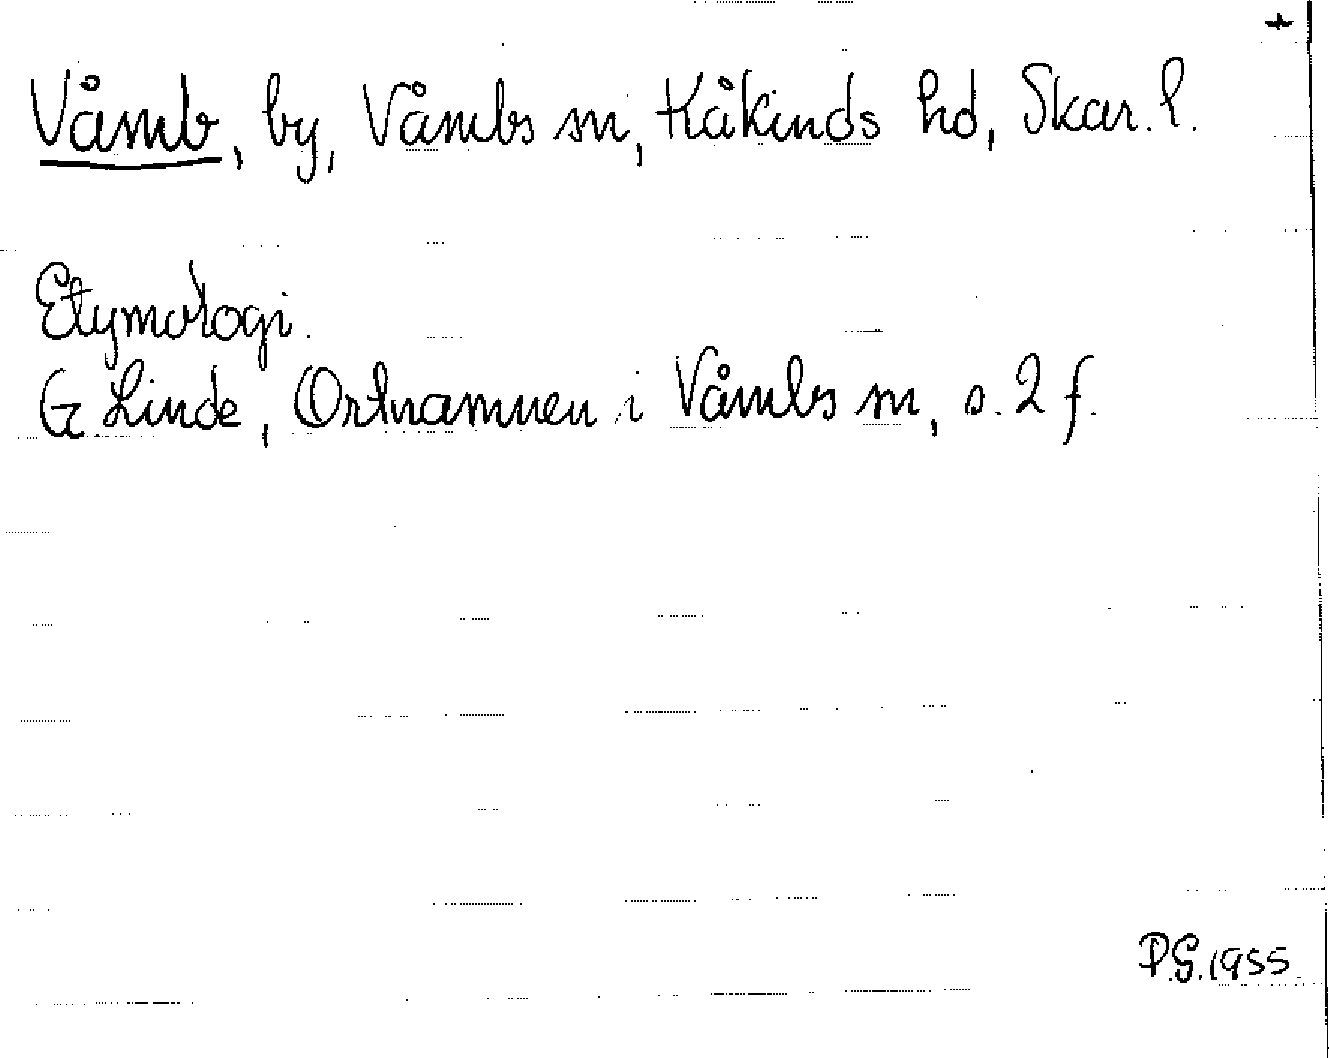 +
Våmb, by, Våmbs sn, Kåkinds hd, Skar. l.
Etymologi.
G. Linde, Ortnamnen i Våmbs sn, s. 2 f.
P.G. 1955